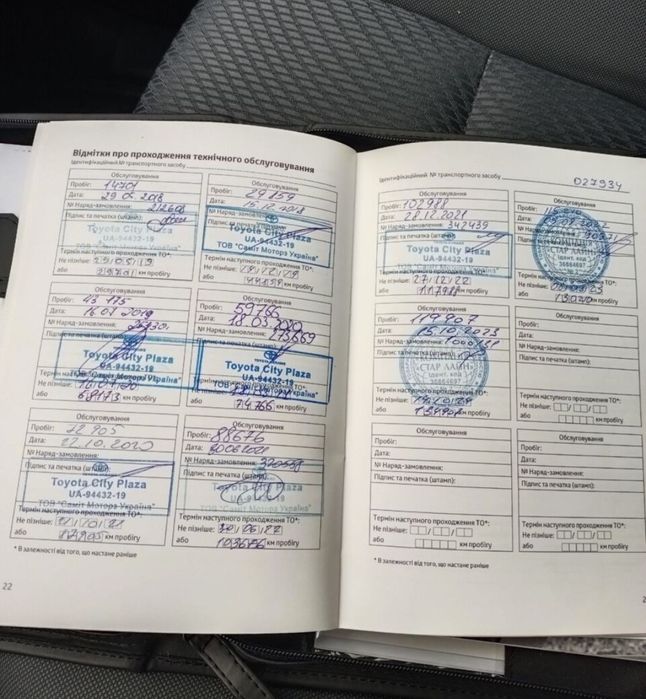 Відмітки про проходження технічного обслуговування
Ідентифікаційний № транспортного засобу
Обслуговування
Пробіг: 14701
Дата: 29.05.2018
№ Наряд-замовлення: 212608
Підпис та печатка (штамп):
Toyota City Plaza
UA-94432-19
ТОВ "Саміт Моторз Україна"
Термін наступного проходження ТО*:
Не пізніше:
або 29701 км пробігу
Обслуговування
Пробіг: 29159
Дата: 15.12.2018
№ Наряд-замовлення:
Toyota City Plaza
UA-94432-19
ТОВ "Саміт Моторз Україна"
Термін наступного проходження ТО*:
Не пізніше:
або км пробігу
Обслуговування
Пробіг: 43175
Дата:
№ Наряд-замовлення:
Підпис та печатка (штамп):
Toyota City Plaza
UA-94432-19
ТОВ "Саміт Моторз Україна"
Не пізніше:
або км пробігу
Обслуговування
Пробіг: 59766
Дата:
№ Наряд-замовлення:
Toyota City Plaza
UA-94432-19
Не пізніше:
або 74766 км пробігу
Обслуговування
Пробіг: 72905
Дата: 22.10.2020
№ Наряд-замовлення:
Підпис та печатка (штамп):
Toyota City Plaza
UA-94432-19
ТОВ "Саміт Моторз Україна"
Термін наступного проходження ТО*:
Не пізніше:
або 87905 км пробігу
Обслуговування
Пробіг: 88676
Дата: 30.06.2021
№ Наряд-замовлення:
Підпис та печатка (штамп):
Toyota City Plaza
UA-94432-19
ТОВ "Саміт Моторз Україна"
Термін наступного проходження ТО*:
Не пізніше: 30 06 22
або 103676 км пробігу
* В залежності від того, що настане раніше
22
Ідентифікаційний № транспортного засобу 027934
Обслуговування
Пробіг: 102988
Дата: 28.12.2021
№ Наряд-замовлення: 342439
Підпис та печатка (штамп):
Toyota City Plaza
UA-94432-19
ТОВ "Саміт Моторз Україна"
Термін наступного проходження ТО*:
Не пізніше: 27 12 22
або 117988 км пробігу
Обслуговування
Пробіг:
Дата:
№ Наряд-замовлення:
Підпис
СТАР ЛАЙН
Ідент. код
36864697
Термін наступного проходження ТО*:
Не пізніше:
або км пробігу
Обслуговування
Пробіг: 119807
Дата: 15.10.2023
№ Наряд-замовлення:
Підпис та печатка
"СТАР ЛАЙН"
Ідент. код
36864697
Термін наступного проходження ТО*:
Не пізніше:
або км пробігу
Обслуговування
Пробіг:
Дата:
№ Наряд-замовлення:
Підпис та печатка (штамп):
Термін наступного проходження ТО*:
Не пізніше:
або км пробігу
Обслуговування
Пробіг:
Дата:
№ Наряд-замовлення:
Підпис та печатка (штамп):
Термін наступного проходження ТО*:
Не пізніше:
або км пробігу
Обслуговування
Пробіг:
Дата:
№ Наряд-замовлення:
Підпис та печатка (штамп):
Термін наступного проходження ТО*:
Не пізніше:
або км пробігу
* В залежності від того, що настане раніше